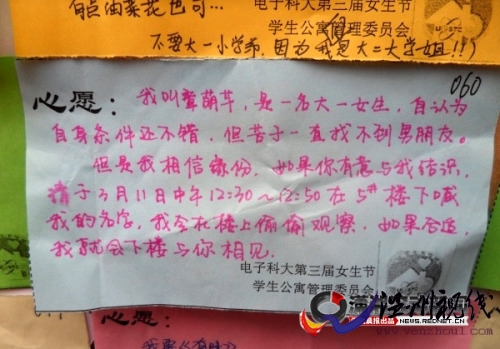 有点油菜花也可...
电子科大第三届女生节
学生公寓管理委员会
不要大一小学弟,因为我是大二大学姐!!)
060
心愿:
我叫龚萌芊,是一名大一女生,自认为
自身条件还不错,但苦于一直找不到男朋友。
但是我相信缘份,如果你有意与我结识,
请于3月11日中午12:30~12:50在5#楼下喊
我的名字,我会在楼上偷偷观察,如果合适,
我就会下楼与你相见。
电子科大第三届女生节
学生公寓管理委员会
NEWS.REDNET.CN
www.venzhoui.com
心愿: